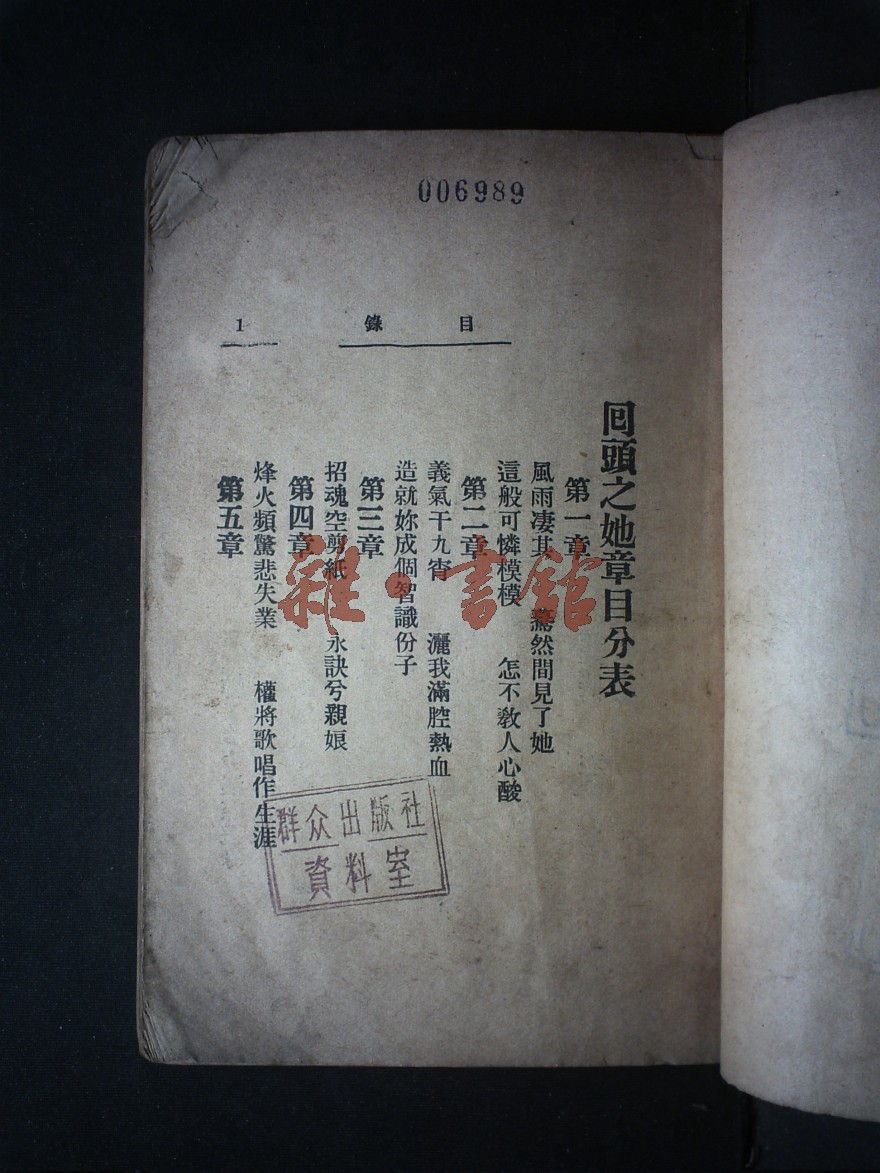 006989
目錄
1
回頭之她章目分表
第一章
風雨凄其 驀然間見了她
這般可憐模模 怎不敎人心酸
第二章
義氣干九霄 灑我滿腔熱血
造就妳成個智識份子
第三章
招魂空剪紙 永訣兮親娘
第四章
烽火頻驚悲失業 權將歌唱作生涯
第五章
雜·書館
群众出版社
資料室